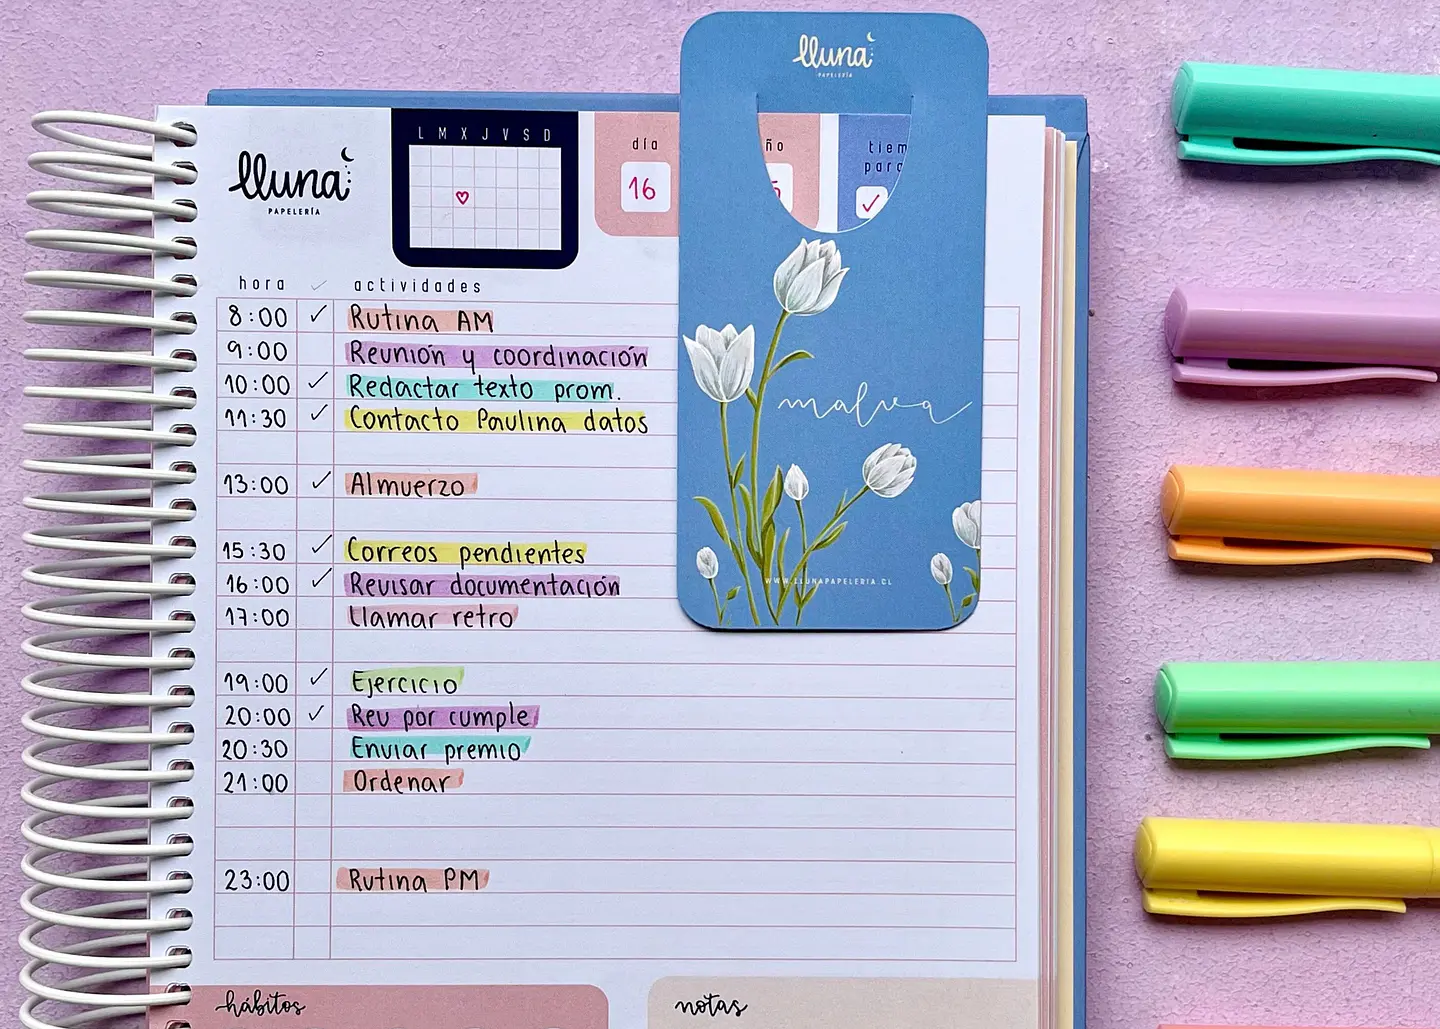 lluna
PAPELERÍA
lluna
PAPELERÍA
L M X J V S D
día
16
ño
tiem
para
hora ✓ actividades
8:00 ✓ Rutina AM
9:00 Reunión y coordinación
10:00 ✓ Redactar texto prom.
11:30 ✓ Contacto Paulina datos
13:00 ✓ Almuerzo
15:30 ✓ Correos pendientes
16:00 ✓ Revisar documentación
17:00 Llamar retro
19:00 ✓ Ejercicio
20:00 ✓ Reu por cumple
20:30 Enviar premio
21:00 Ordenar
23:00 Rutina PM
malva
WWW.LLUNAPAPELERIA.CL
hábitos
notas